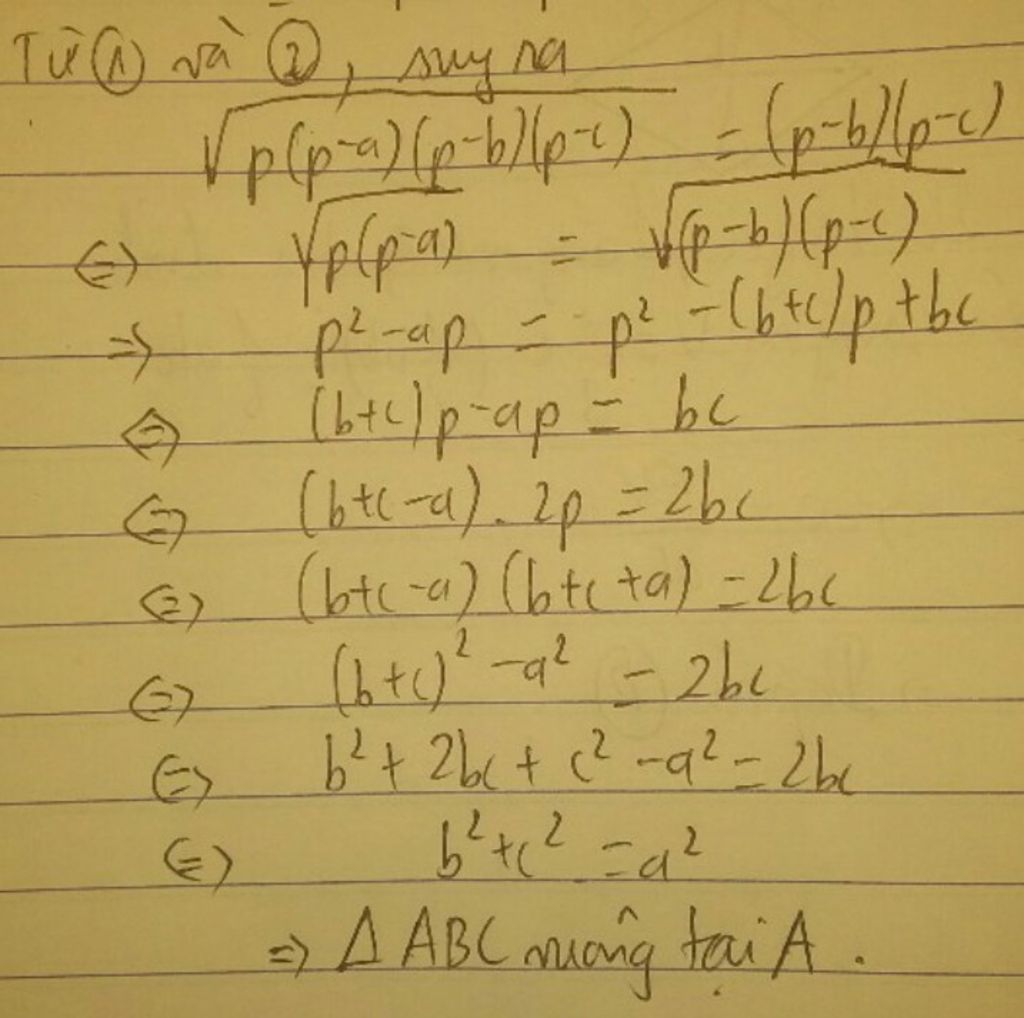 Từ ① và ②, suy ra
√(p(p-a)(p-b)(p-c)) = (p-b)(p-c)
⇔ √(p(p-a)) = √((p-b)(p-c))
⇒ p² - ap = p² - (b+c)p + bc
⇔ (b+c)p - ap = bc
⇔ (b+c-a). 2p = 2bc
⇔ (b+c-a)(b+c+a) = 2bc
⇔ (b+c)² - a² = 2bc
⇔ b² + 2bc + c² - a² = 2bc
⇔ b² + c² = a²
⇒ Δ ABC vuông tại A .